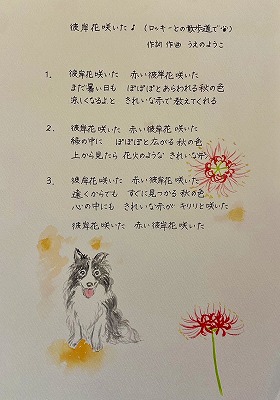 彼岸花咲いた♪ (ロッキーとの散歩道で)
作詞 作曲 うえのようこ
1. 彼岸花咲いた 赤い彼岸花咲いた
まだ暑い日も ぽぽぽとあらわれる秋の色
涼しくなるよと きれいな赤で教えてくれる
2. 彼岸花咲いた 赤い彼岸花咲いた
緑の中に ぽぽぽと広がる秋の色
上から見たら 花火のような きれいな形
3. 彼岸花咲いた 赤い彼岸花咲いた
遠くからでも すぐに見つかる秋の色
心の中にも きれいな赤が キリリと咲いた
彼岸花咲いた 赤い彼岸花咲いた